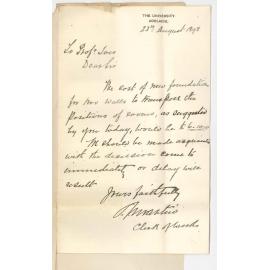 THE UNIVERSITY
ADELAIDE
23rd August 1898
To Prof. Ives
Dear Sir
The cost of new foundation
for two walls to transpose the
positions of rooms, as suggested
by you today, would be £
should be made acquainted
with the decision come to
immediately or delay will
result
Yours faithfully
Clerk of Works